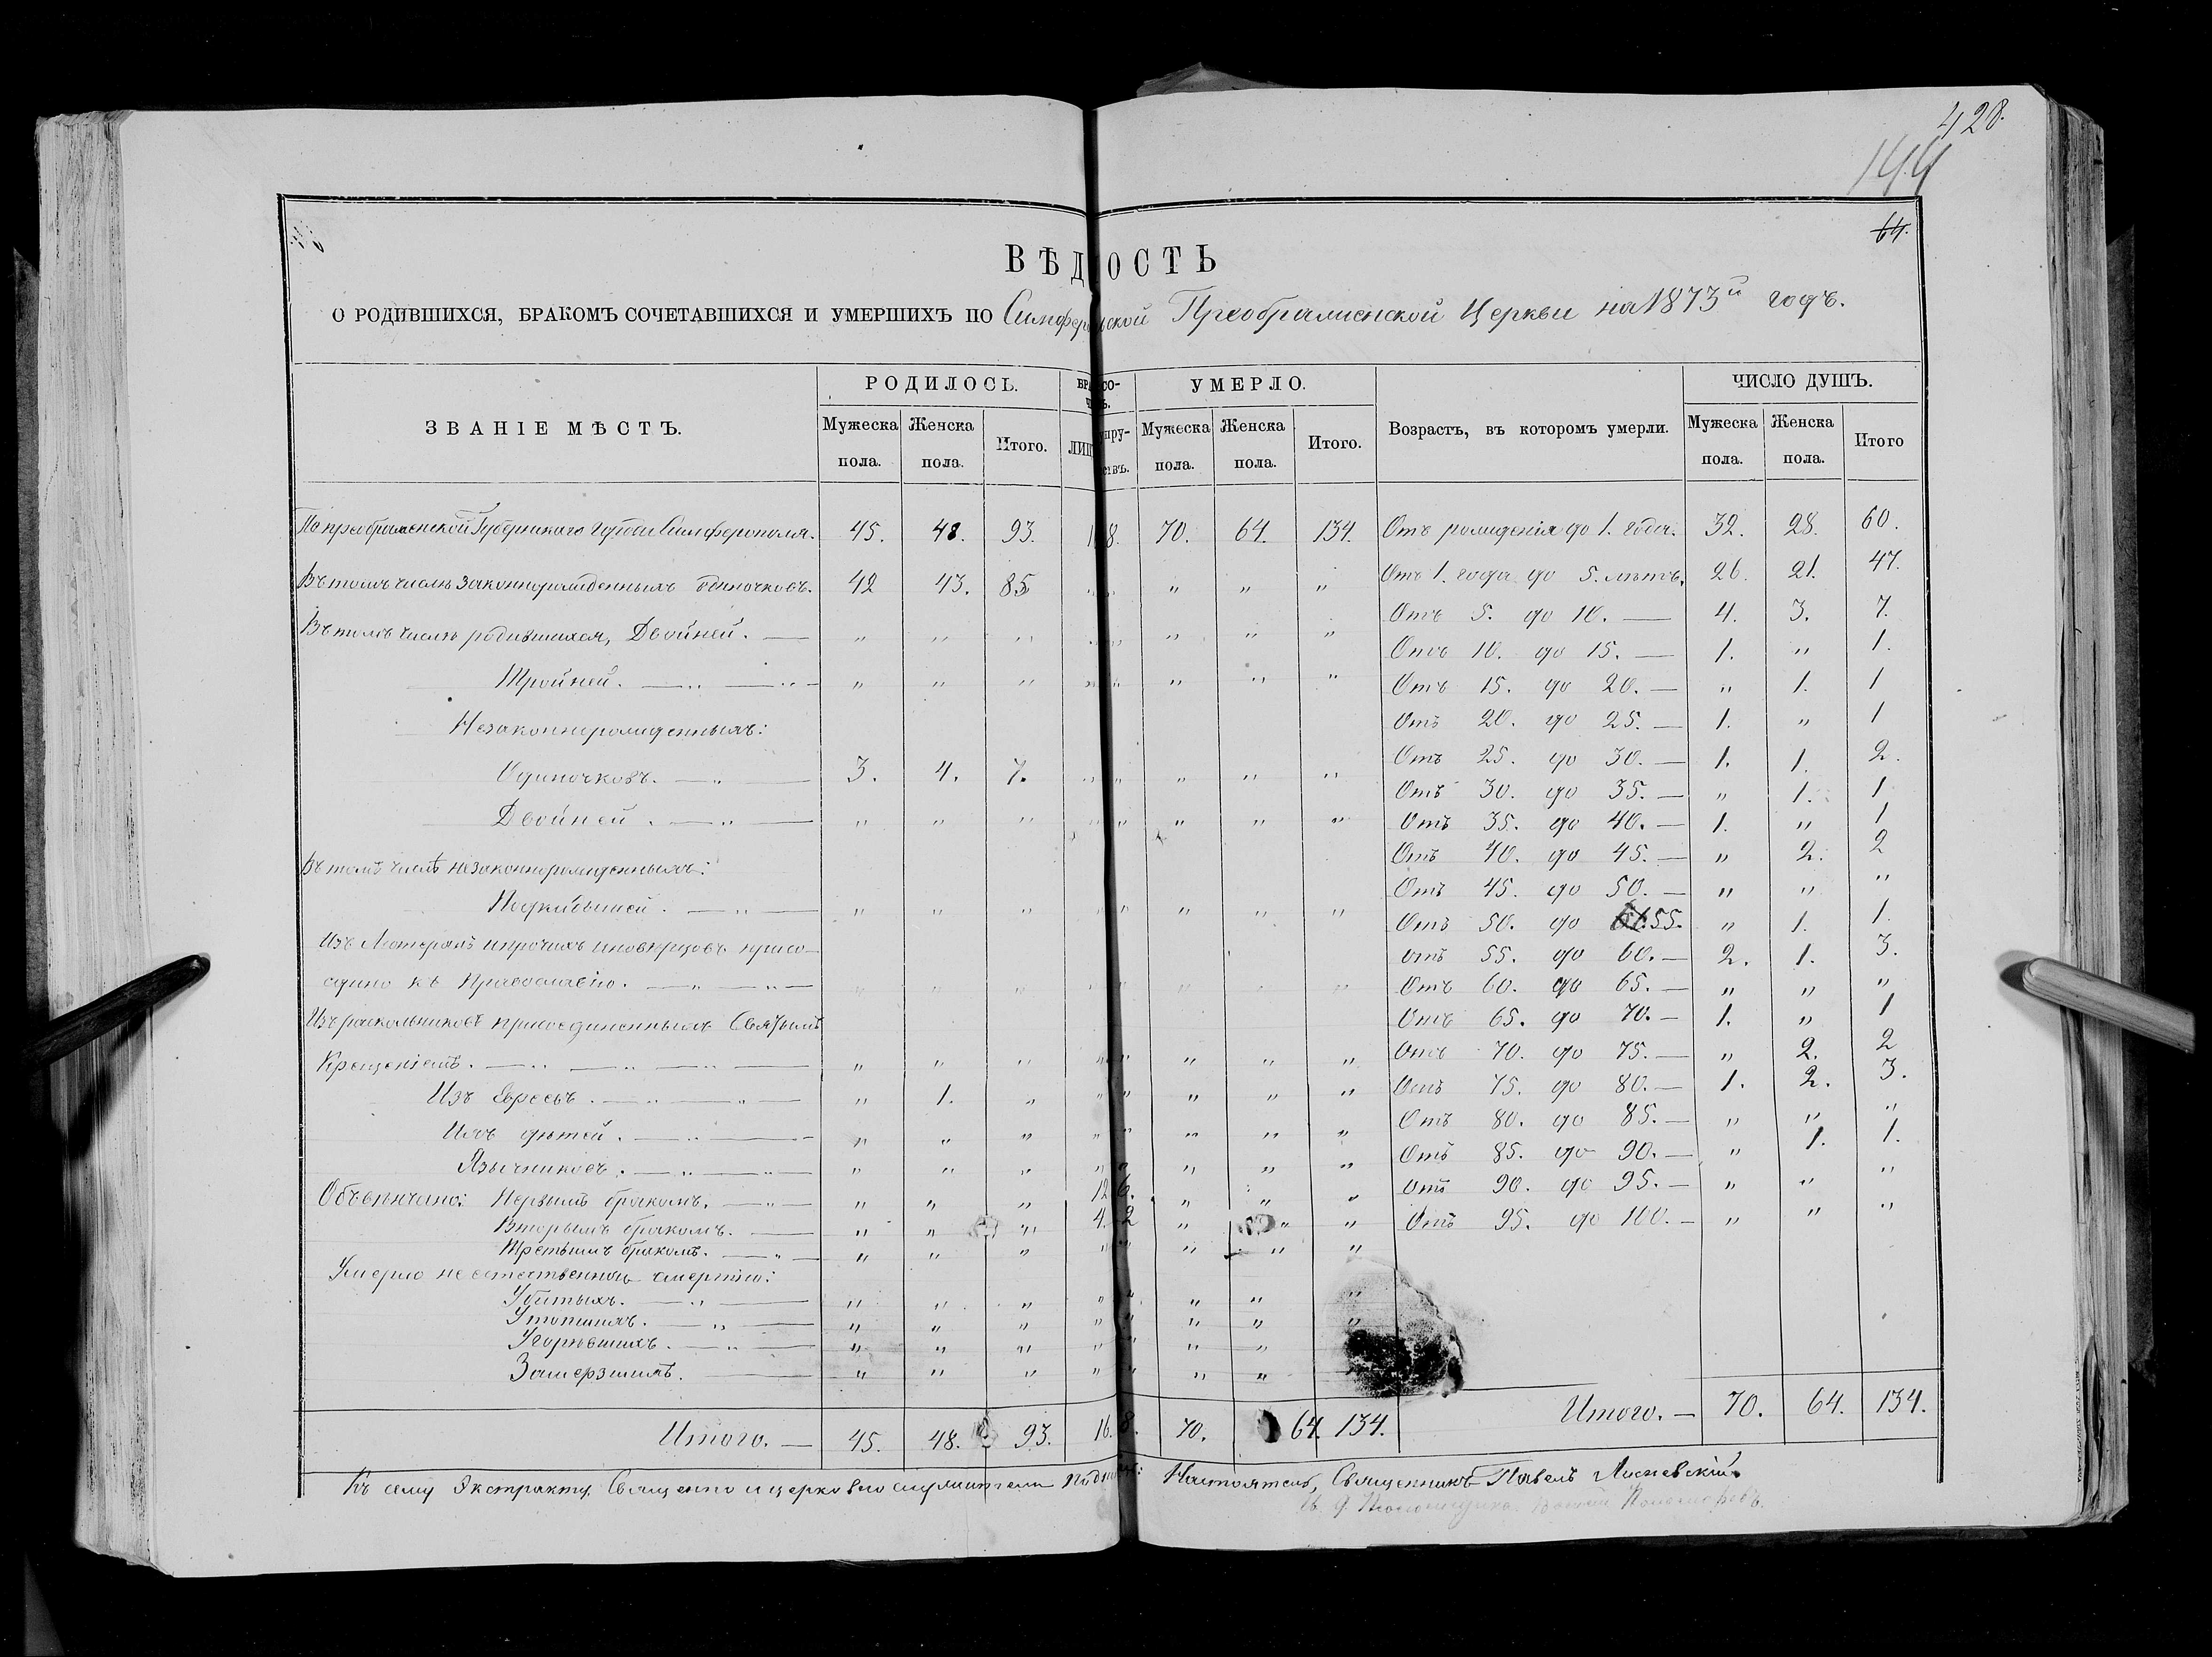 428.
199
64.
ВѢДОСТЬ
О РОДИВШИХСЯ, БРАКОМЪ СОЧЕТАВШИХСЯ И УМЕРШИХЪ ПО Симферопольской Преображенской Церкви на 1873й годъ.
ЗВАНІЕ МѢСТЪ. РОДИЛОСЬ. УМЕРЛО. Возрастъ, въ которомъ умерли. ЧИСЛО ДУШЪ.
Мужеска пола. Женска пола. Итого. Мужеска пола. Женска пола. Итого. Мужеска пола. Женска пола. Итого
По преображенской Губернскаго города Симферополя. 45. 48. 93. 16 8. 70. 64. 134. Отъ рожденія до 1. года. 32. 28. 60.
Въ томъ числѣ законнорожденныхъ одиночковъ. 42 43. 85 „ „ „ „ „ Отъ 1. года до 5. лѣтъ. 26. 21. 47.
Въ томъ числѣ родившихся, Двойней. — „ „ „ „ „ „ „ „ Отъ 5. до 10. — 4. 3. 7.
Отъ 10. до 15. — 1. „ 1.
Тройней. — „ — „ — „ „ „ „ „ „ „ „ Отъ 15. до 20. — „ 1. 1
Незаконнорожденныхъ: Отъ 20. до 25. — 1. „ 1
Одиночковъ. — „ — 3. 4. 7. „ „ „ „ „ Отъ 25. до 30. — 1. 1. 2.
Отъ 30. до 35. — „ 1. 1
Двойней. — „ — „ „ „ „ „ „ „ „ Отъ 35. до 40. — 1. „ 1
Въ томъ числѣ незаконнорожденныхъ: Отъ 40. до 45. — „ 2. 2
Отъ 45. до 50. — „ „ „
Подкидышей. — „ — „ „ „ „ „ „ „ „ Отъ 50. до 55. „ 1. 1.
Изъ Лютеранъ и прочихъ иновѣрцовъ присо- отъ 55. до 60. — 2. 1. 3.
едино къ Православію. — „ — „ — „ „ „ „ „ „ „ Отъ 60. до 65. — „ „ „
Изъ раскольниковъ присоединенныхъ Святымъ Отъ 65. до 70. — 1. „ 1
Крещеніемъ. — „ — „ — „ — „ „ „ „ „ „ „ „ Отъ 70. до 75. — „ 2. 2
Изъ Евреевъ. — „ — „ — „ 1. „ „ „ „ „ „ Отъ 75. до 80. — 1. 2. 3.
Ихъ дѣтей. — „ — „ „ „ „ „ „ „ „ Отъ 80. до 85. — „ „ „
Язычниковъ. — „ — „ — „ „ „ „ „ „ „ „ Отъ 85. до 90. — „ 1. 1.
Объвѣнчано: Первымъ бракомъ. — „ — „ „ „ 12 6. „ „ „ Отъ 90. до 95. — „ „ „
Вторымъ бракомъ. — „ „ „ 4. 2 „ „ „ Отъ 95. до 100. — „ „ „
Третьимъ бракомъ. — „ — „ „ „ „ „ „ „ „
Умерло не естественною смертію:
Убитыхъ. — „ — „ „ „ „ „ „ „ „
Утопшихъ. — „ — „ „ „ „ „ „ „ „
Угорѣвшихъ. — „ — „ „ „ „ „ „ „
Замерзшихъ. — „ „ „ „ „ „ „
Итого. — 45. 48. 93. 16. 8. 70. 64. 134. Итого. — 70. 64. 134.
Къ сему Экстракту Священно и церковно служители Настоятель, Священникъ Павелъ
Пономаревъ.